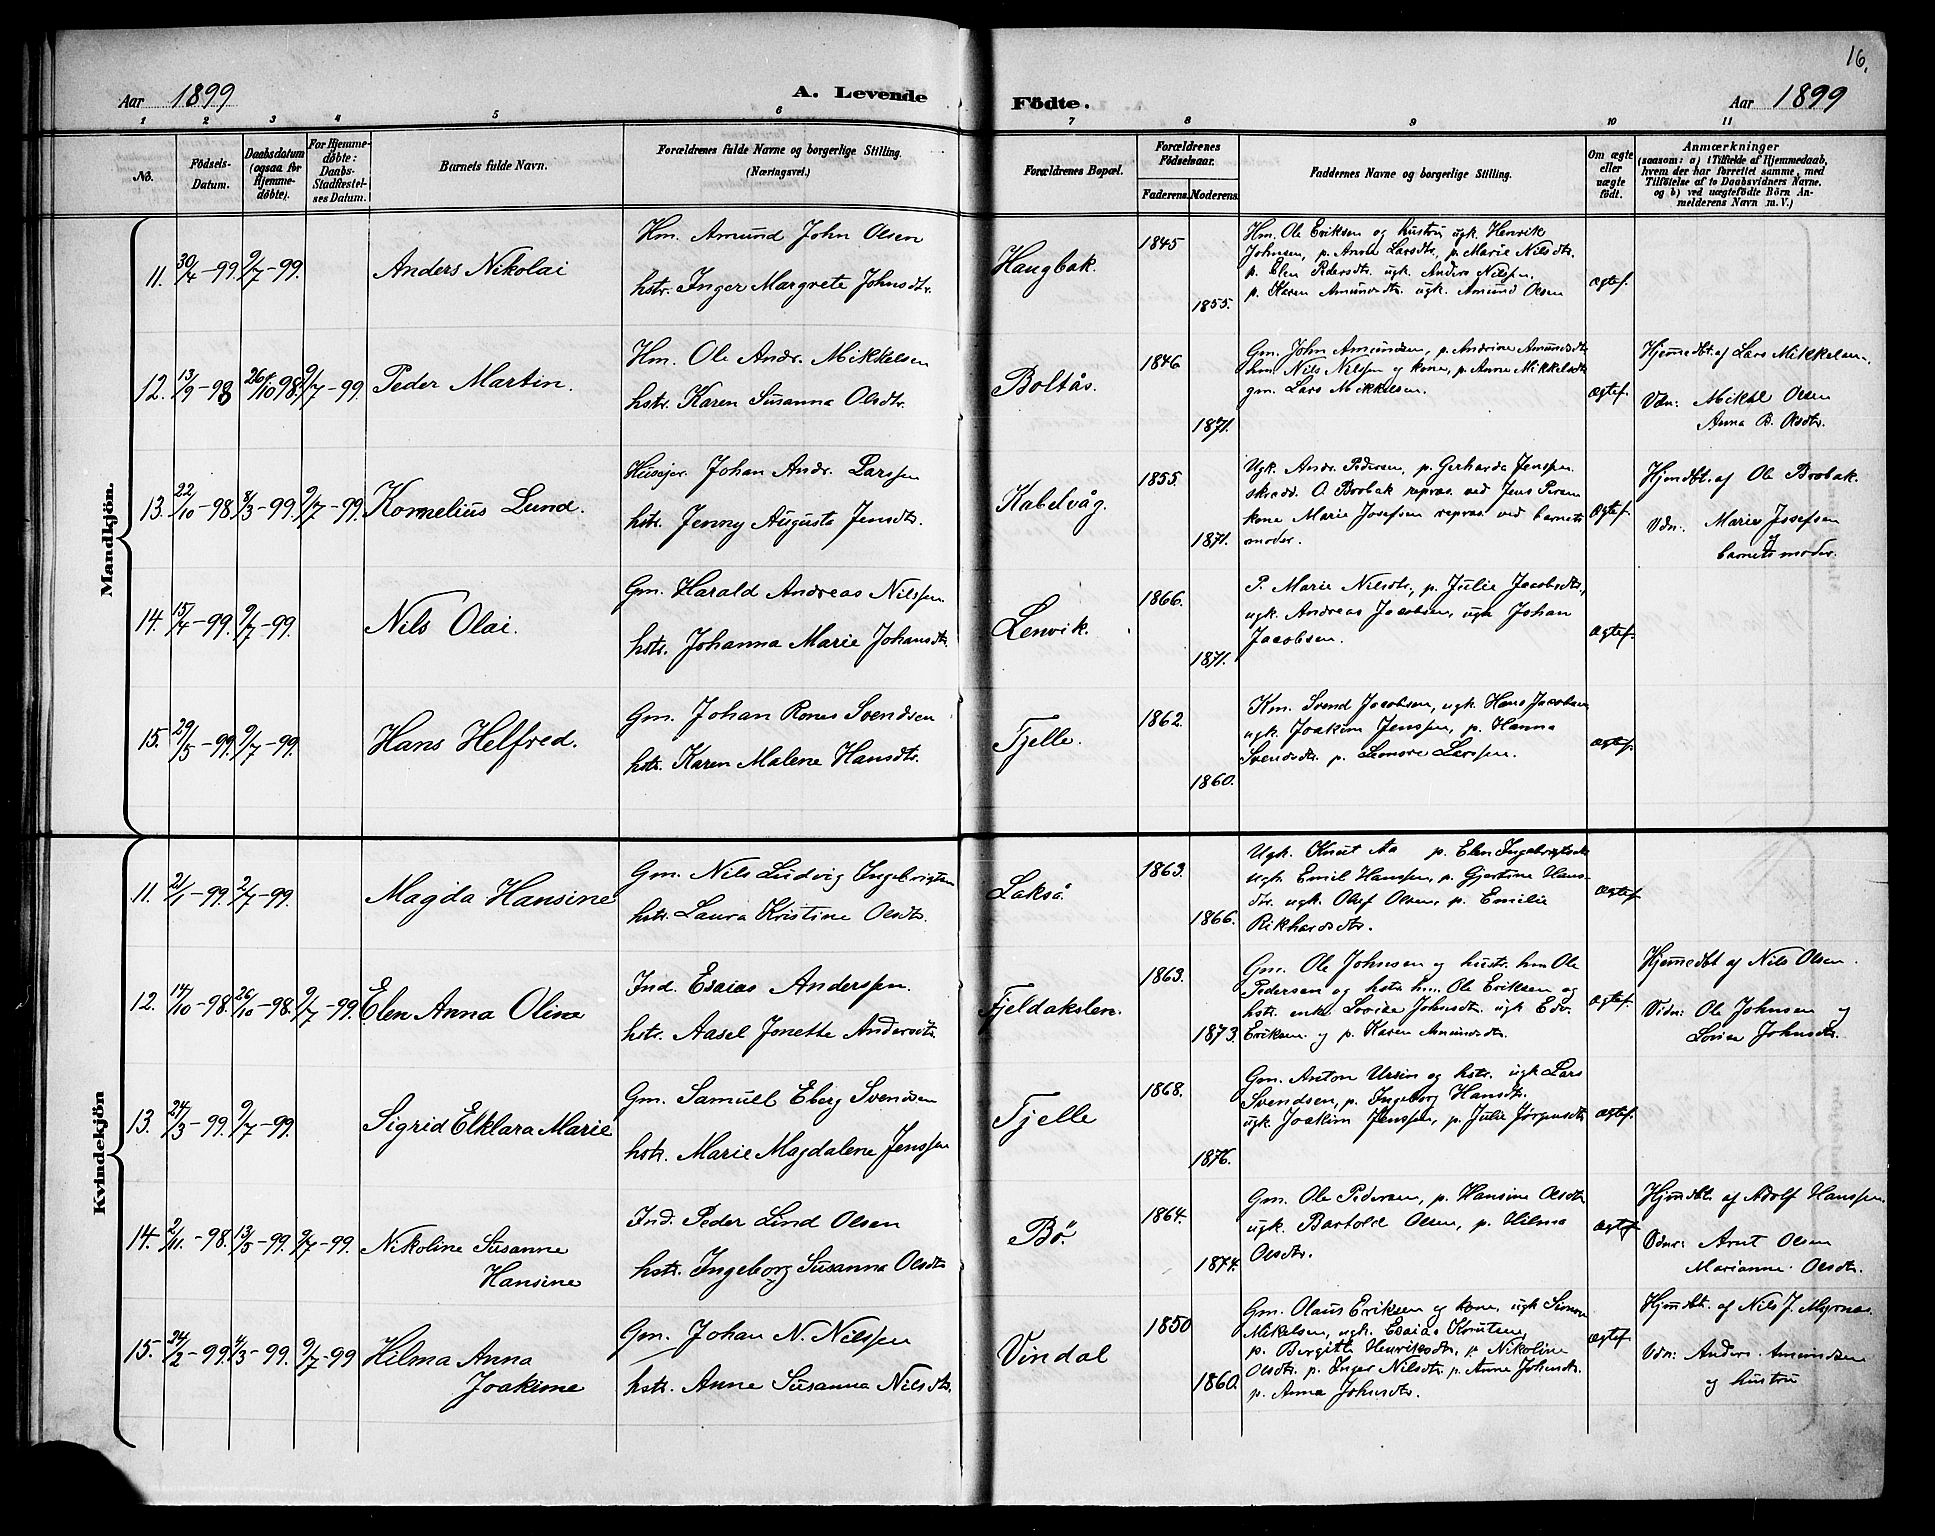 16.
Aar 1899 A. Levende Födte. Aar 1899
1 2 3 4 5 6 7 8 9 10 11
No.
Födsels-
Datum.
Daabsdatum
(ogsaa for
Hjemme-
døbte).
For Hjemme-
døbte:
Daabs-
Stadfæstel-
ses Datum.
Barnets fulde Navn.
Forældrenes fulde Navne og borgerlige Stilling.
(Næringsvei.)
Forældrenes Bopæl.
Forældrenes
Födselsaar.
Faderens. Moderens.
Faddernes Navne og borgerlige Stilling.
Om ægte
eller
uægte
födt.
Anmærkninger
(saasom: a) i Tilfælde af Hjemmedaab,
hvem der har forrettet samme, med
Tilföielse af to Daabsvidners Navne,
og b) ved uægtefödte Börn An-
melderens Navn m. V.)
Mandkjön.
11. 30/4-99. 9/7-99. Anders Nikolai
Hm. Amund John Olsen
hstr. Inger Margrete Johnsdtr.
Haugbak. 1845 1855.
Hm. Ole Eriksen og hustru ugk. Henrik
Johnsen, p. Anna Larsdtr, p. Marie Nilsdtr.
p. Elen Pedersdtr. ugk. Anders Nilsen.
p. Karen Amundsdtr. ugk. Amund Olsen
ægtef.
12. 13/9-98 26/10 98. 9/7-99. Peder Martin.
Hm. Ole Andr. Mikkelsen
hstr. Karen Susanna Olsdtr.
Boltås. 1846 1871.
Gm. John Amundsen, p. Andrine Amundsdtr
hm. Nils Nilsen og kone, p. Anne Mikkelsdtr
gm. Lars Mikkelsen.
ægtef.
Hjemmedbt. af Lars Mikkelsen
Vdn: Mikal Olsen
Anna B. Olsdtr.
13. 22/10-98 8/3-99. 9/7-99. Kornelius Lund.
Husejer Johan Andr. Larssen
hstr. Jenny Augusta Jensdtr.
Kabelvåg. 1855. 1871.
Ugk. Andr. Pedersen, p. Gerharda Jenssen
skrædd. O. Brobak repræs. ved Jens
kone Marie Josefsen repræs. ved barnets
moder.
ægtef.
Hjemdbt. af Ole Brobak.
Vdn: Marie Josefsen
barnets moder.
14. 15/4-99. 9/7-99. Nils Olai.
Gm. Harald Andreas Nilssen.
hstr. Johanna Marie Johansdtr.
Lenvik. 1866. 1871.
P. Marie Nilsdtr, p. Julie Jacobsdtr,
ugk. Andreas Jacobsen, ugk Johan
Jacobsen.
ægtef.
15. 29/5-99. 9/7-99. Hans Helfred.
Gm. Johan Rones Svendsen
hstr. Karen Malene Hansdtr.
Tjelle. 1862. 1860.
Km. Svend Jacobsen, ugk. Hans Jacobsen
ugk. Joakim Jenssen, p. Hanna
Svendsdtr. p. Lenore Larssen.
ægtef.
Kvindekjön
11. 21/1-99. 2/7-99. Magda Hansine
Gm. Nils Ludvig Ingebrigtsen
hstr. Laura Kristine Olsdtr.
Lakså. 1863. 1866.
Ugk. Knut Aa p. Elen Ingebrigtsdtr
ugk. Emil Hanssen, p. Gjertine Hans-
dtr. ugk. Oluf Olsen, p. Emilie
Rikhardsdtr.
ægtef
12. 14/10-98. 26/10-98. 9/7-99. Elen Anna Oline
Ind. Esaias Anderssen.
hstr. Aasel Jonette Andersdtr.
Fjeldakslen. 1863. 1873.
Gm. Ole Johnsen og hustr. hm Ole
Pedersen og hstr. h.... Ole Eriksen og
hstr. enke Lovise Johnsdtr. ugk Edv.
Eriksen og p. Karen Amundsdtr.
ægtef.
Hjemmedbt af Nils Olsen.
Vidn: Ole Johnsen og
Lovise Johnsdtr.
13. 24/3-99. 9/7-99. Sigrid Elklara Marie
Gm. Samuel Eberg Svendsen
hstr. Marie Magdalene Jenssen
Tjelle 1868. 1876.
Gm. Anton Ursin og hstr. ugk Lars
Svendsen, p. Ingeborg Hansdtr.
ugk Joakim Jenssen, p. Julie Jörgensdtr
ægtef.
14. 2/11-98. 13/5-99. 9/7-99. Nikoline Susanne
Hansine
Ind. Peder Lind Olsen
hstr. Ingeborg Susanna Olsdtr
Bö. 1864. 1874.
Gm. Ole Pedersen, p. Hansine Olsdtr
ugk. Bartold Olsen, p. Hilma
Olsdtr.
ægtef
Hjemdbt af Adolf Hanssen.
Vdn: Arnt Olsen
Marianne Olsdtr.
15. 24/2-99. 4/3-99. 9/7-99 Hilma Anna
Joakime
Gm. Johan N. Nilssen
hstr. Anne Susanna Nilsdtr.
Vindal 1850 1860.
Gm. Olaus Eriksen og kone, ugk Simon
Mikelsen, ugk. Esaias Knutsen,
p. Bergitte Henriksdtr, p Nikoline
Olsdtr. p. Inger Nilsdtr. p. Anne Johnsdtr.
p. Anna Johnsdtr.
ægtef.
Hjemdbt. af Nils J. Myrnas.
Vdn: Anders Amundsen
og hustru